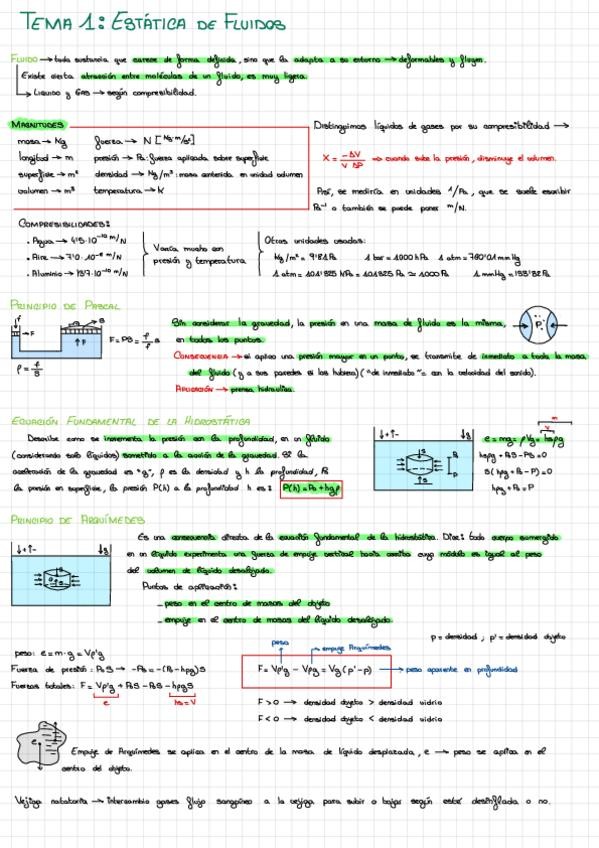 TEMA 1: ESTÁTICA DE FLUIDOS
FLUIDO → toda sustancia que carece de forma definida, sino que la adapta a su entorno → deformables y fluyen.
Existe cierta atracción entre moléculas de un fluido, es muy ligera.
Líquido y Gas → según compresibilidad.
MAGNITUDES
masa → Kg fuerza → N [Kg·m/s²]
longitud → m presión → Pa: fuerza aplicada sobre superficie
superficie → m² densidad → Kg/m³: masa contenida en unidad volumen
volumen → m³ temperatura → K
Distinguimos líquidos de gases por su compresibilidad →
X = -ΔV / V ΔP → cuando sube la presión, disminuye el volumen.
Así, se mediría en unidades 1/Pa, que se suele escribir
Pa⁻¹ o también se puede poner m/N.
COMPRESIBILIDADES:
• Agua → 4'5·10⁻¹⁰ m/N
• Aire → 7'0·10⁻⁶ m/N
• Aluminio → 1'37·10⁻¹⁰ m/N
Varía mucho con
presión y temperatura
Otras unidades usadas:
Kg/m² = 9'81 Pa 1 bar = 1000 hPa 1 atm = 760'01 mm Hg
1 atm = 101'325 kPa = 101325 Pa ≃ 1000 Pa 1 mmHg = 133'32 Pa
PRINCIPIO DE PASCAL
Sin considerar la gravedad, la presión en una masa de fluido es la misma,
en todos los puntos.
CONSECUENCIA → si aplico una presión mayor en un punto, se transmite de inmediato a toda la masa
del fluido (y a sus paredes si las hubiera) ("de inmediato" = con la velocidad del sonido).
APLICACIÓN → prensa hidráulica.
f
S
→ F
↑ F
F = PS = f/s S
P = f/s
P
ECUACIÓN FUNDAMENTAL DE LA HIDROSTÁTICA
Describe como se incrementa la presión con la profundidad, en un fluido
(considerando solo líquidos) sometido a la acción de la gravedad. Si la
aceleración de la gravedad es "g", ρ es la densidad y h la profundidad, P₀
la presión en superficie, la presión P(h) a la profundidad h es: P(h) = P₀ + hgρ
↓+↑- ↓g
m
V
e = mg = ρVg = hsρg
hρgS + P₀S - PS = 0
S(hρg + P₀ - P) = 0
hρg + P₀ = P
PRINCIPIO DE ARQUÍMEDES
↓+↑- ↓g
Es una consecuencia directa de la ecuación fundamental de la hidrostática. Dice: todo cuerpo sumergido
en un líquido experimenta una fuerza de empuje vertical hacia arriba cuyo módulo es igual al peso
del volumen de líquido desalojado.
Puntos de aplicación:
- peso en el centro de masas del objeto
- empuje en el centro de masas del líquido desalojado.
ρ = densidad ; ρ' = densidad objeto
peso: e = m·g = Vρ'g
Fuerza de presión: P₀S → -P₀ = -(P₀-hρg)S
Fuerzas totales: F = Vρ'g + P₀S - P₀S - hρgS
e
hs = V
peso
empuje Arquímedes
F = Vρ'g - Vρg = Vg(ρ'-ρ) → peso aparente en profundidad
F > 0 → densidad objeto > densidad vidrio
F < 0 → densidad objeto < densidad vidrio
e
Empuje de Arquímedes se aplica en el centro de la masa de líquido desplazada, e → peso se aplica en el
centro del objeto.
Vejiga natatoria → intercambio gases flujo sanguíneo a la vejiga para subir o bajar según esté desinflada o no.